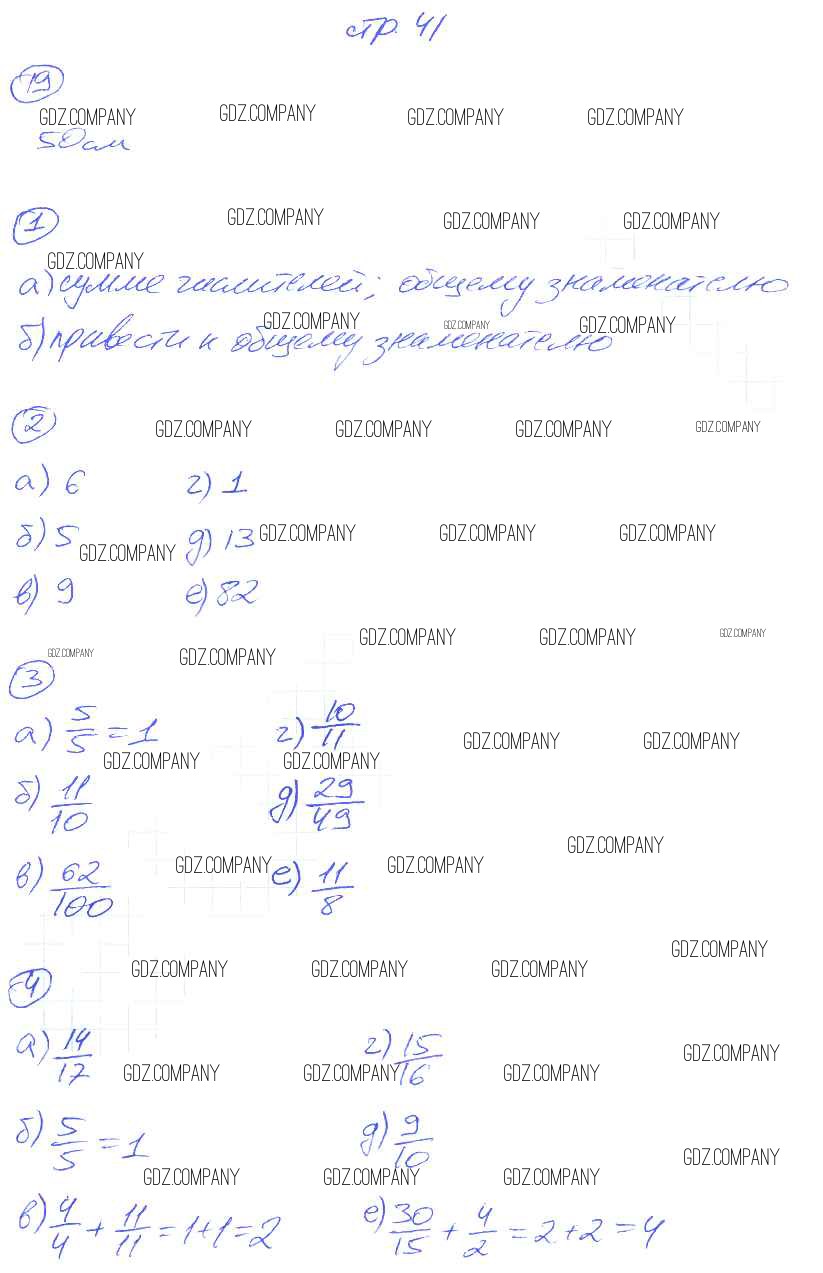 стр. 41
19
GDZ.COMPANY GDZ.COMPANY GDZ.COMPANY GDZ.COMPANY
50 см
1
GDZ.COMPANY GDZ.COMPANY GDZ.COMPANY
GDZ.COMPANY
а) сумме числителей; общему знаменателю
GDZ.COMPANY GDZ.COMPANY GDZ.COMPANY
б) привести к общему знаменателю
2
GDZ.COMPANY GDZ.COMPANY GDZ.COMPANY GDZ.COMPANY
а) 6 г) 1
б) 5 GDZ.COMPANY д) 13 GDZ.COMPANY GDZ.COMPANY GDZ.COMPANY
в) 9 е) 82
GDZ.COMPANY GDZ.COMPANY GDZ.COMPANY
GDZ.COMPANY GDZ.COMPANY
3
а) 5/5 = 1 г) 10/11
GDZ.COMPANY GDZ.COMPANY
GDZ.COMPANY GDZ.COMPANY
б) 11/10 д) 29/49
GDZ.COMPANY
в) 62/100 GDZ.COMPANY е) 11/8 GDZ.COMPANY
GDZ.COMPANY
GDZ.COMPANY GDZ.COMPANY GDZ.COMPANY
4
а) 14/17 г) 15/16
GDZ.COMPANY
GDZ.COMPANY GDZ.COMPANY GDZ.COMPANY
б) 5/5 = 1 д) 9/10
GDZ.COMPANY
GDZ.COMPANY GDZ.COMPANY GDZ.COMPANY
в) 4/4 + 11/11 = 1+1=2 е) 30/15 + 4/2 = 2+2=4